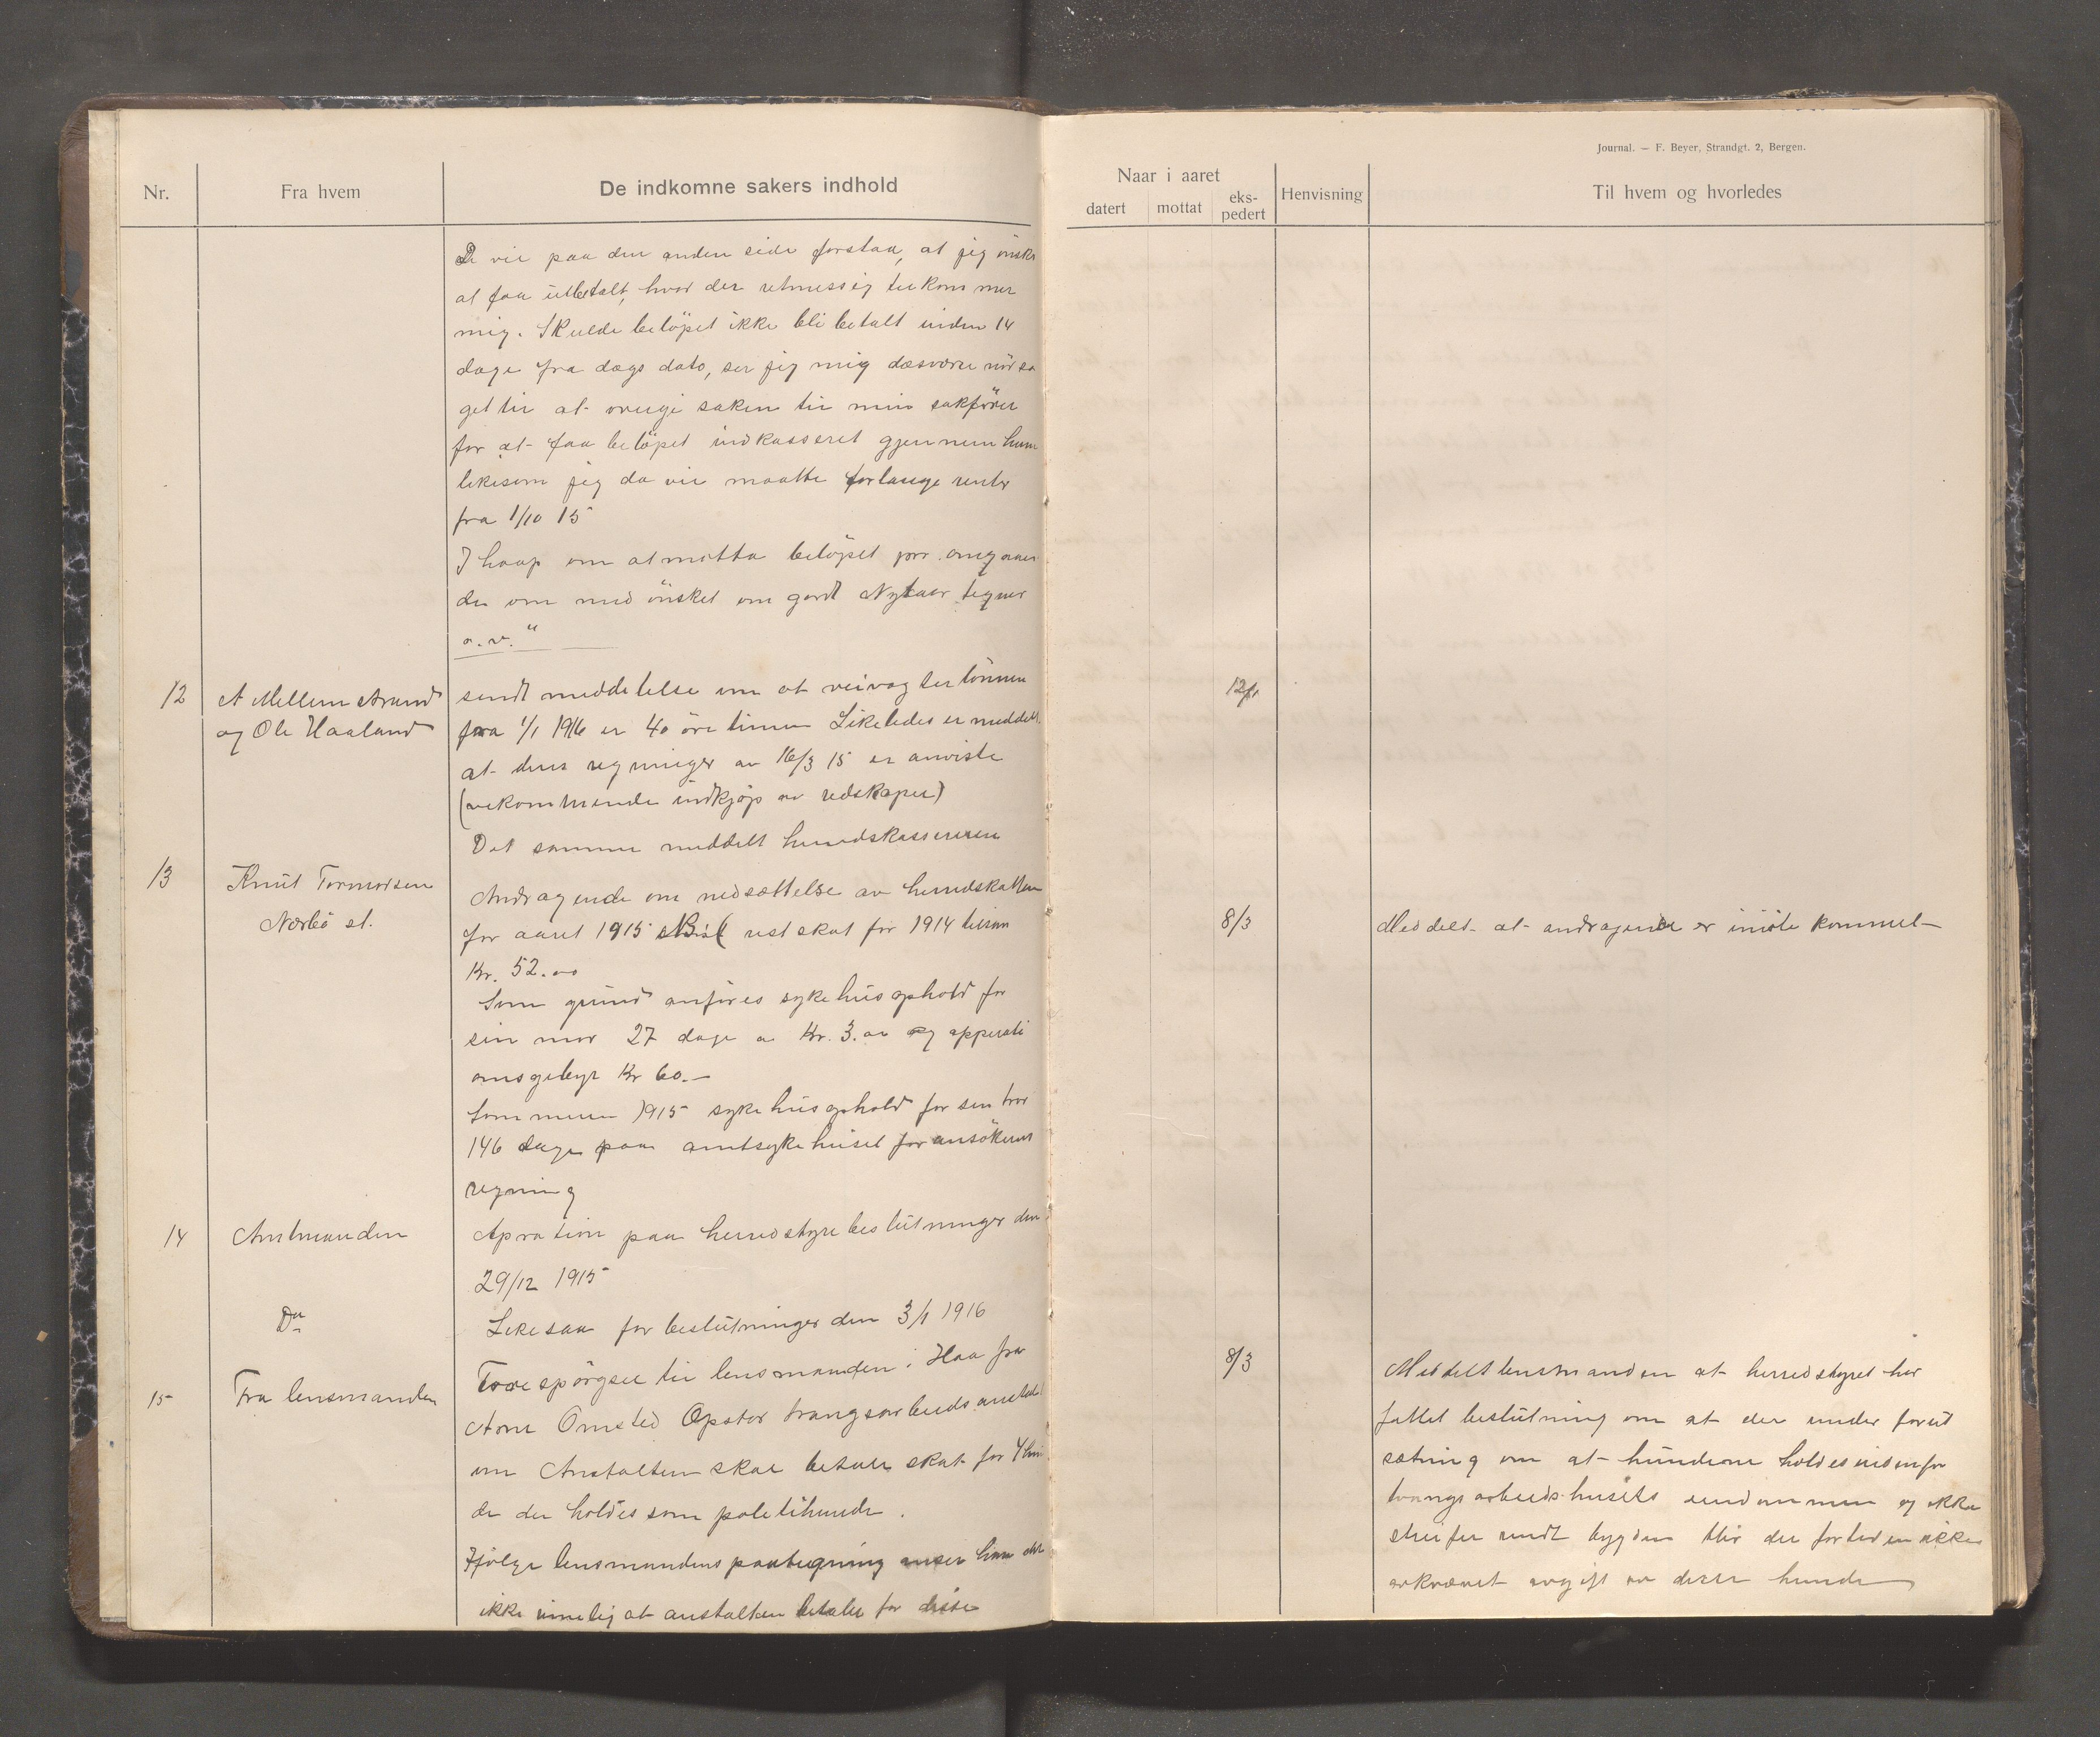 Journal. — F. Beyer, Strandgt. 2, Bergen.
Nr.
Fra hvem
De indkomne sakers indhold
Naar i aaret
datert
mottat
eks-
pedert
Henvisning
Til hvem og hvorledes
De vil paa den anden side forstaa, at jeg önsker
at faa utbetalt, hvad der retmessig tilkommer
mig. Skulde belöpet ikke bli betalt inden 14
dage fra dags dato, ser jeg mig desværre nödsa
get til at overgi saken til min sakförer
for at faa belöpet indkasseret gjennem ham
likesom jeg da vil maatte forlange renter
fra 1/10 15
I haap om at motta belöpet pr. omgaaen
de om med önsket om godt Nytaar tegner
a.v."
12
A Mellemstrand
og Ole Haaland
sendt meddelelse om at veivogterlönnen
fra 1/1 1916 er 40 öre timen Likeledes er meddelt
at deres regninger av 16/3 15 er anviste
(vekommende indkjöp av redskaper)
Det samme meddelt herredskassereren
12/1
13
Knut Tormodsen
Nærbö st.
Andragende om nedsættelse av herredskatten
for aaret 1915 restskat for 1914 tilsam
Kr. 52.00
Som grund anföres sykehusophold for
sin mor 27 dage a Kr. 3.00 og opperati
onsgebyr Kr 60.—
Sommeren 1915 sykehusophold for sin bror
146 dage paa amtsykehuset for ansökerens
regning
8/3
Meddelt at andragende er imöte kommet
14
Amtmanden
Apration paa herredstyrebeslutninger den
29/12 1915
Do
Likesaa for beslutninger den 3/1 1916
15
Fra lensmanden
Forespörgsel til lensmanden i Haa fra
Arne Omsted Opstad tvangsarbeidsanstalt
om Anstalten skal betale skat for 4 hun
de der holdes som politihunde.
Ifölge lensmandens paategning anser han det
ikke rimelig at anstalten betaler for disse
8/3
Meddelt lensmanden at herredstyret har
fattet beslutning om at der under forut
sætning om at hundene holdes indenfor
tvangsarbeidshusets eiendommen og ikke
streifer rundt bygden blir der fortiden ikke
avkrævet avgift av disse hunde